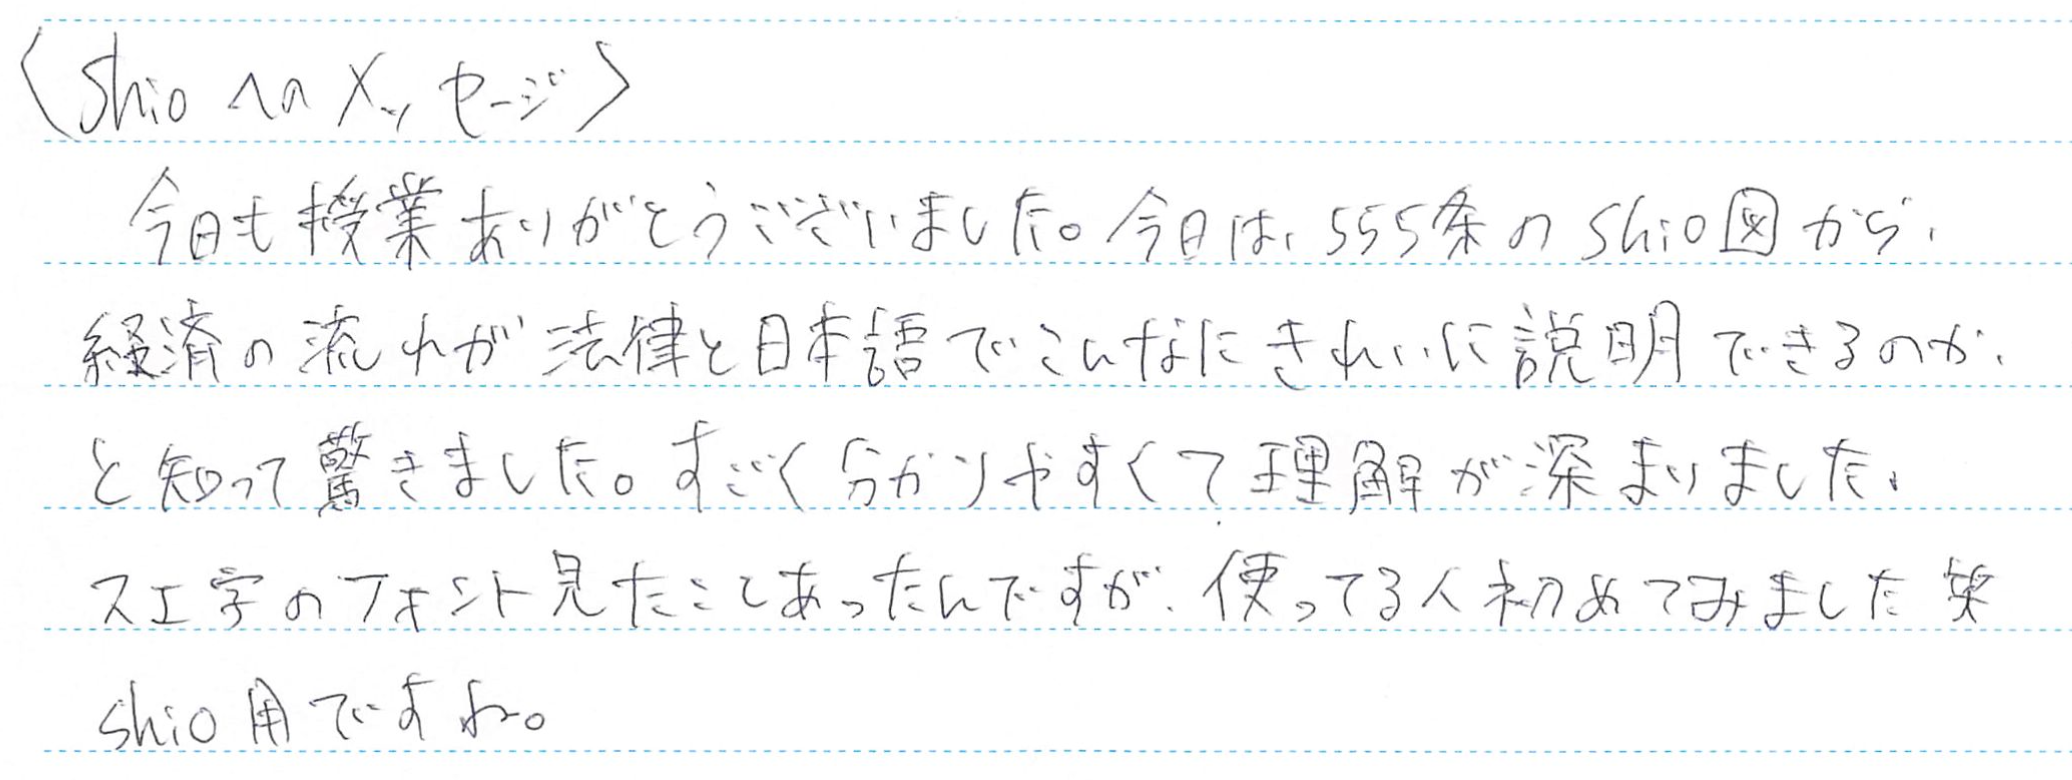 〈Shioへのメッセージ〉
今日も授業ありがとうございました。今日は、555条のShio図から、
経済の流れが法律と日本語でこんなにきれいに説明できるのか、
と知って驚きました。すごく分かりやすくて理解が深まりました。
ス工字のフォント見たことあったんですが、使ってる人初めてみました笑
shio用ですね。